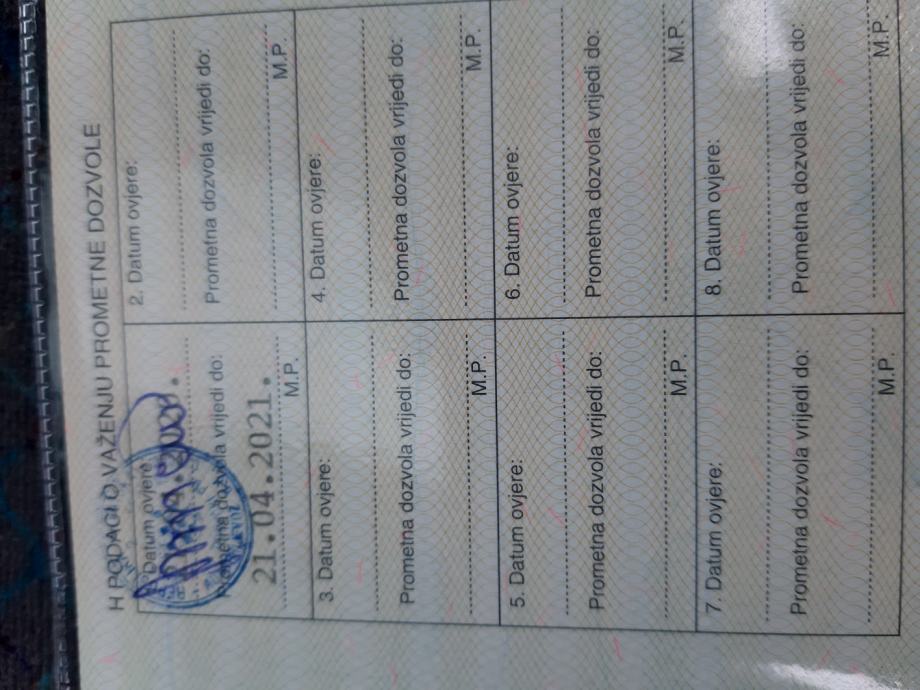 H PODACI O VAŽENJU PROMETNE DOZVOLE
Datum ovjere
Prometna dozvola vrijedi do:
21.04.2021.
M.P.
2. Datum ovjere:
Prometna dozvola vrijedi do:
M.P.
3. Datum ovjere:
Prometna dozvola vrijedi do:
M.P.
4. Datum ovjere:
Prometna dozvola vrijedi do:
M.P.
5. Datum ovjere:
Prometna dozvola vrijedi do:
M.P.
6. Datum ovjere:
Prometna dozvola vrijedi do:
M.P.
7. Datum ovjere:
Prometna dozvola vrijedi do:
M.P.
8. Datum ovjere:
Prometna dozvola vrijedi do:
M.P.